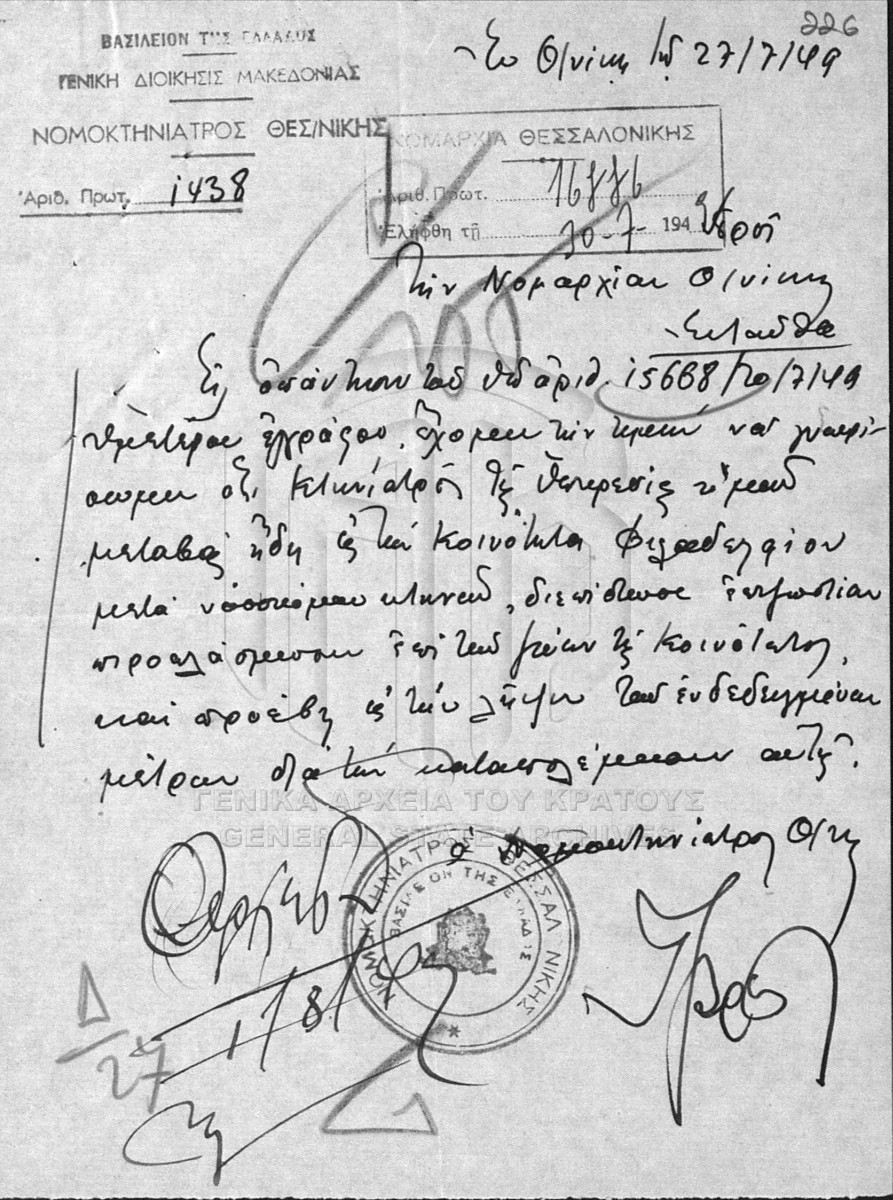 226
ΒΑΣΙΛΕΙΟΝ ΤΗΣ ΕΛΛΑΔΟΣ
ΓΕΝΙΚΗ ΔΙΟΙΚΗΣΙΣ ΜΑΚΕΔΟΝΙΑΣ
ΝΟΜΟΚΤΗΝΙΑΤΡΟΣ ΘΕΣ/ΝΙΚΗΣ
Ἀριθ. Πρωτ. 1438
Ἐν Θ/νίκῃ τῇ 27/7/49
ΝΟΜΑΡΧΙΑ ΘΕΣΣΑΛΟΝΙΚΗΣ
Ἀριθ. Πρωτ. 16886
Ἐλήφθη τῇ 30-7- 194
Πρὸς
τὴν Νομαρχίαν Θ/νίκης
Ἐνταῦθα
Εἰς ἀπάντησιν τοῦ ὑπ' ἀριθ. 15668/20/7/49
ὑμετέρου ἐγγράφου, ἔχομεν τὴν τιμὴν νὰ γνωρί-
σωμεν ὅτι Κτηνίατρος τῆς Ὑπηρεσίας ἡμῶν
μεταβὰς ἤδη εἰς τὴν Κοινότητα Φιλαδελφίου
μετὰ νοσοκόμου κτηνῶν, διεπίστωσε
ἐπὶ τῶν ζώων τῆς Κοινότητος,
καὶ προέβη εἰς τὴν λῆψιν τῶν ἐνδεδειγμένων
μέτρων διὰ τὴν καταπολέμησιν αὐτῆς.
ΓΕΝΙΚΑ ΑΡΧΕΙΑ ΤΟΥ ΚΡΑΤΟΥΣ
GENERAL STATE ARCHIVES
ὁ Νομοκτηνίατρος Θ/κης
ΝΟΜΟΚΤΗΝΙΑΤΡΟΣ ΘΕΣΣΑΛΟΝΙΚΗΣ
ΒΑΣΙΛΕΙΟΝ ΤΗΣ ΕΛΛΑΔΟΣ
1/8/49
Δ/27